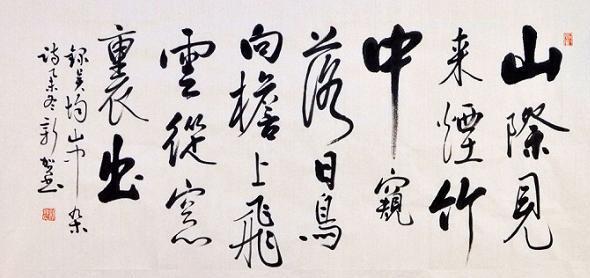 山際見
来煙竹
中窺
落日鳥
向檐上飛
雲從窓
裏出
録吴均山中杂
诗